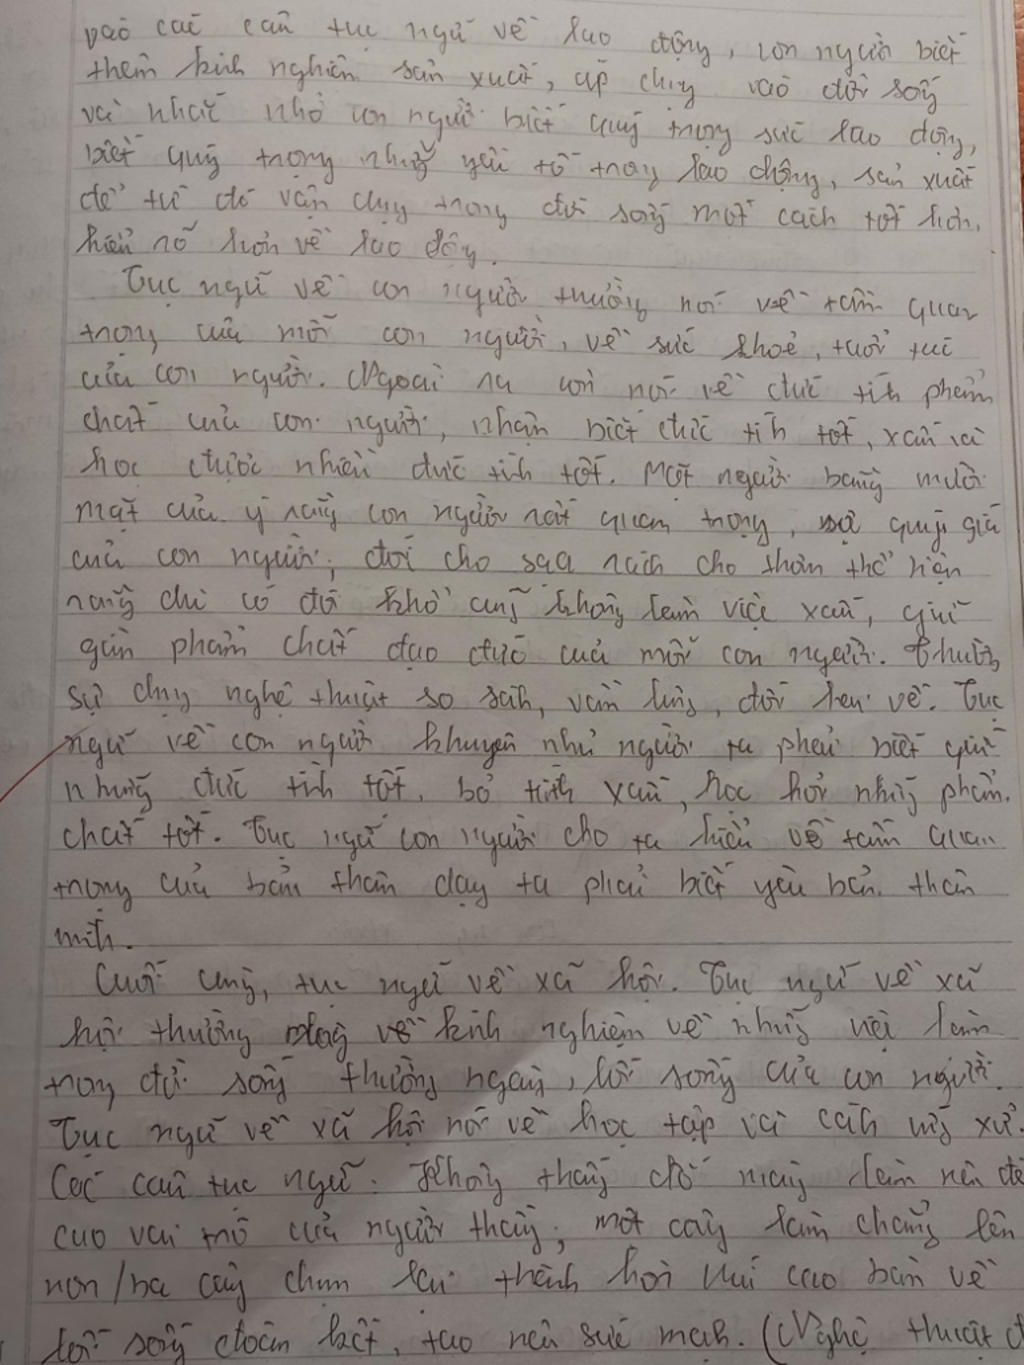 vào các câu tục ngữ về lao động, con người biết
thêm kinh nghiệm sản xuất, áp dụng vào đời sống
và nhắc nhở con người biết quý trọng sức lao động,
biết quý trọng những yếu tố trong lao động, sản xuất
để từ đó vận dụng trong đời sống một cách tốt hơn,
hiểu rõ hơn về lao động.
Tục ngữ về con người thường nói về tầm quan
trọng của mỗi con người, về sức khoẻ, tuổi tác
của con người. Ngoài ra còn nói về đức tính phẩm
chất của con người, nhận biết đức tính tốt, xấu và
học được nhiều đức tính tốt. Một người bằng mười
mặt của ý rằng con người rất quan trọng, sự quý giá
của con người; đói cho sạch rách cho thơm thể hiện
rằng dù có đói khổ cũng không làm việc xấu, giữ
gìn phẩm chất đạo đức của mỗi con người. Thường
sử dụng nghệ thuật so sánh, vần lưng, đối hai vế. Tục
ngữ về con người khuyên nhủ người ta phải biết giữ
những đức tính tốt, bỏ tính xấu, học hỏi những phẩm
chất tốt. Tục ngữ con người cho ta hiểu về tầm quan
trọng của bản thân dạy ta phải biết yêu bản thân
mình.
Cuối cùng, tục ngữ về xã hội. Tục ngữ về xã
hội thường về kinh nghiệm về những việc làm
trong đời sống thường ngày, lối sống của con người.
Tục ngữ về xã hội nói về học tập và cách ứng xử.
Các câu tục ngữ: Không thầy đố mày làm nên đề
cao vai trò của người thầy; một cây làm chẳng lên
non/ba cây chụm lại thành hòn núi cao bàn về
lối sống đoàn kết, tạo nên sức mạnh. (Nghệ thuật